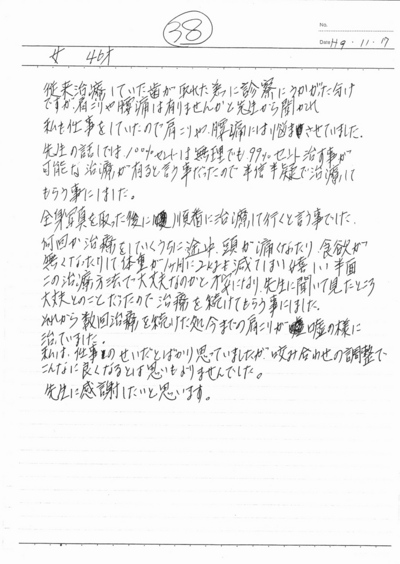 38
No.
Date H19・11・17
女 46才
従来治療していた歯が取れた為に診察にうかがった分け
ですが、肩こりや腰痛は有りませんかと先生から聞かれ
私も仕事をしていたので肩こりや、腰痛にはり悩まさせていました。
先生の話しでは、100%セントは無理でも99%セント治す事が
可能な治療が有ると言う事だったので半信半疑で治療して
もらう事にしました。
全身写真を取った後に順番に治療して行くと言う事でした。
何回か治療をしていくうちに途中、頭が痛くなたり、食欲が
無くなたりして体重が1ヶ月に2kgも減てしまい嬉しい半面
この治療方法で大丈夫なのかと不安になり、先生に聞いて見たところ
大丈夫とのことだったので治療を続けてもらう事にしました。
それから数回治療を続けた処今までの肩こりが嘘の様に
治ていました。
私は、仕事のせいだとばかり思っていましたが咬み合わせの調整で
こんなに良くなるとは思いもよりませんでした。
先生に感謝したいと思います。